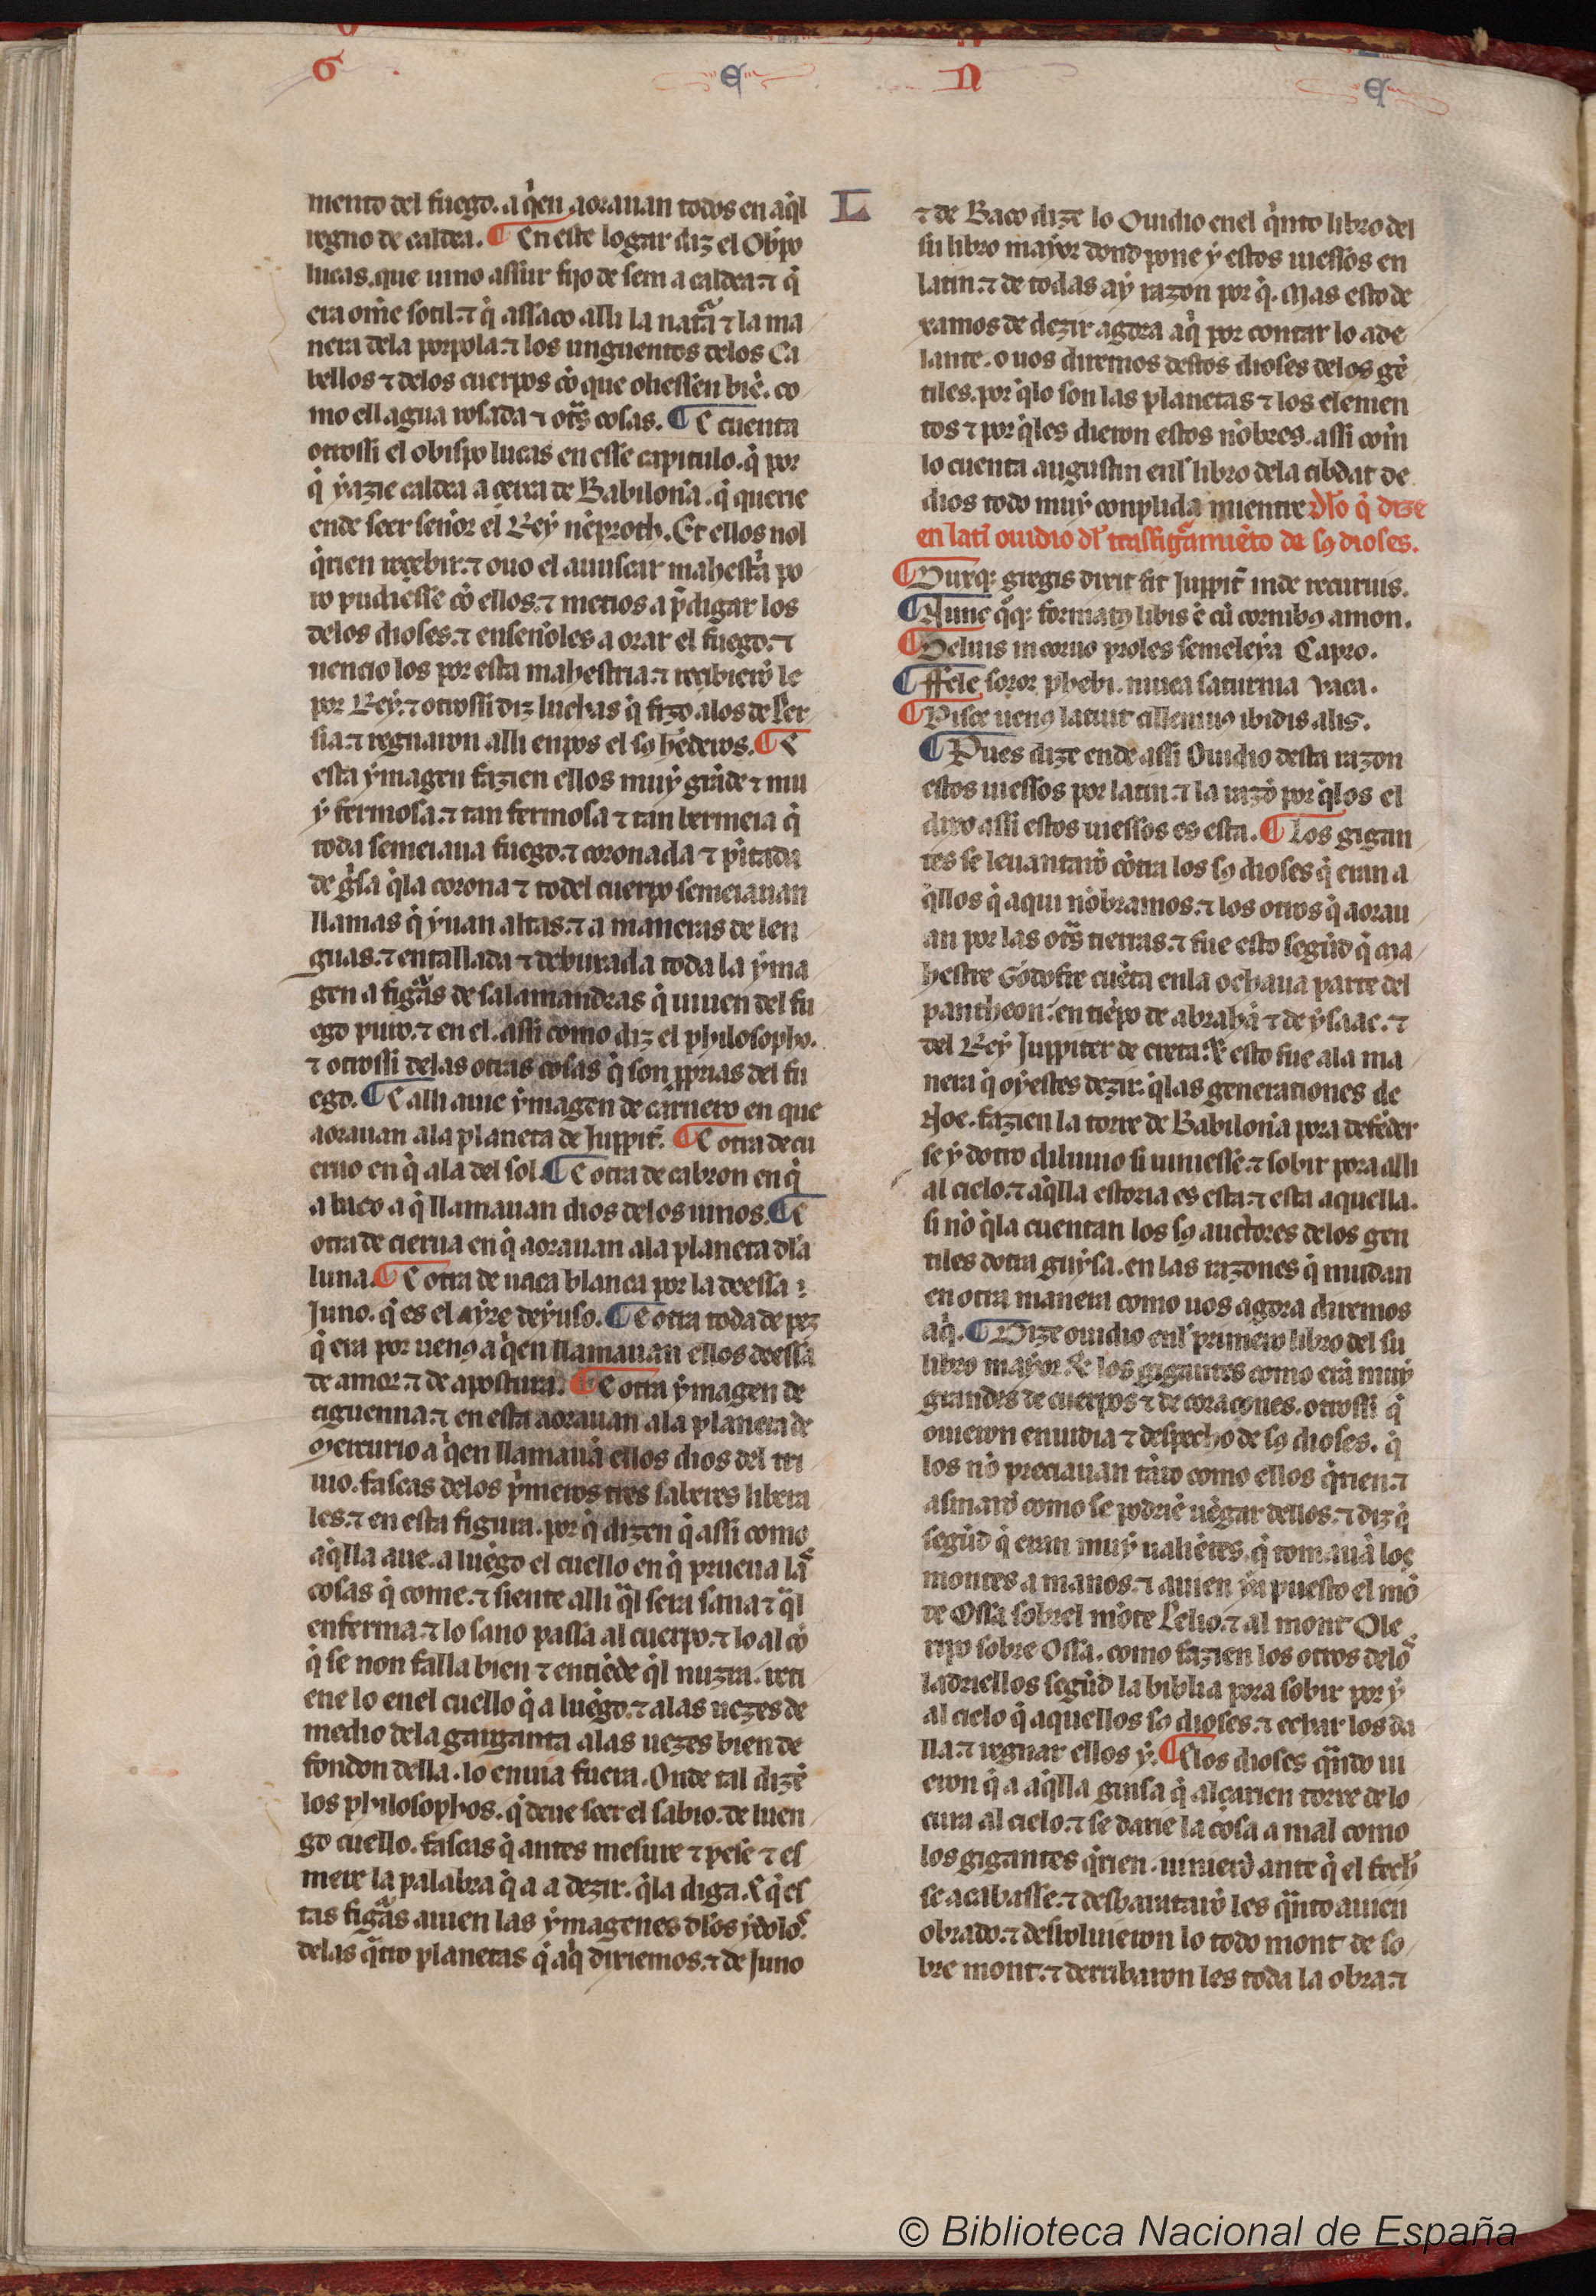 G E N E
mento del fuego. a q̇en aorauan todos en aq̇l
regno de caldea. ¶ En este logar diz el Obp̄o
lucas. que uino assur fijo de sem a caldea. ⁊ q̇
era om̄e sotil. ⁊ q̇ assaco alli la nat̃a ⁊ la ma
nera dela porpola. ⁊ los unguentos delos Ca
bellos ⁊ delos cuerpos cō que oliessen biē. co
mo ell agua rosada ⁊ ot̃s cosas. ¶ E cuenta
otrossi el obispo lucas en esse capitulo. q̇ por
q̇ yazie caldea a cerca de Babilonia. q̇ querie
ende seer sen̄or el Rey nēproth. Et ellos nol
q̇rien recebir. ⁊ ouo el a buscar mahest̃a po
ro pudiesse cō ellos. ⁊ metios a p̄digar los
delos dioses. ⁊ ensen̄oles a orar el fuego. ⁊
uencio los por esta mahestria. ⁊ recibierō le
por Rey. ⁊ otrossi diz luchas q̇ fizo alos de Per
sia. ⁊ regnaron alli enpos el sꝯ hēderos. ¶ E
esta ymagen fazien ellos muy grāde ⁊ mu
y fermosa. ⁊ tan fermosa ⁊ tan bermeia q̇
toda semeiaua fuego. ⁊ coronada ⁊ pītada
de ġsa q̇la corona ⁊ todel cuerpo semeiauan
llamas q̇ yuan altas. ⁊ a maneras de len
guas. ⁊ entallada ⁊ deburada toda la yma
gen a figãs de salamandras q̇ uiuen del fu
ego puro. ⁊ en el. assi como diz el philosopho.
⁊ otrossi delas otras cosas q̇ son p̄prias del fu
ego. ¶ E alli auie ymagen de carnero en que
aorauan ala planeta de Juppit̃. ¶ E otra de cu
eruo en q̇ ala del sol. ¶ E otra de cabron en q̇
a baco a q̇ llamauan dios delos uinos. ¶ E
otra de cierua en q̇ aorauan ala planeta dl̄a
luna. ¶ E otra de uaca blanca por la deessa
Juno. q̇ es el ayre deyuso. ¶ E otra toda de pez
q̇ era por uenꝯ a q̇en llamauan ellos deessa
de amor. ⁊ de apostura. ¶ E otra ymagen de
ciguenna. ⁊ en esta aorauan ala planeta de
Mercurio a q̇en llamauā ellos dios del tri
uio. fascas delos ṗmeros tres saberes libera
les. ⁊ en esta figura. por q̇ dizen q̇ assi como
aq̇lla aue. a luēgo el cuello en q̇ prueua las
cosas q̇ come. ⁊ siente alli q̃l sera sana ⁊ q̃l
enferma. ⁊ lo sano passa al cuerpo. ⁊ lo al cō
q̇ se non falla bien ⁊ entiēde q̇l nuzra. reti
ene lo enel cuello q̇ a luēgo. ⁊ alas uezes de
medio dela garganta alas uezes bien de
fondon della. lo enuia fuera. Onde tal dizē
los philosophos. q̇ deue seer el sabio. de luen
go cuello. fascas q̇ antes mesure ⁊ pese ⁊ es
mere la palabra q̇ a a dezir. q̇la diga. E q̇ es
tas figãs auien las ymagenes dl̄os ydolos
delas q̃tro planetas q̇ aq̇ dixiemos. ⁊ de Juno
L ⁊ de Baco dize lo Ouidio enel q̇nto libro del
su libro mayor dond pone y estos uiessos en
latin. ⁊ de todas ay razon por q̇. Mas esto de
xamos de dezir agora aq̇ por contar lo ade
lante. o uos diremos destos dioses delos gē
tiles. por q̇lo son las planetas ⁊ los elemen
tos ⁊ por q̇les dieron estos nōbres. assi com̄
lo cuenta augustin enl̄ libro dela cibdat de
dios todo muy conplida mientre Dl̄o q̇ dize
en latī ouidio dl̄ trasfigãmiēto de sꝯ dioses.
¶ Duxq; gregis dixit fit Juppit̃ inde recuruis.
¶ Nunc q̊q; formatꝯ libis ē cū cornibꝯ amon.
¶ Deluis in coruo proles semeleya Capro.
¶ ffele soror phebi. niuea saturnia vaca.
¶ Pisce uenꝯ latuit cilleniꝯ ibidis alis.
¶ Pues dize ende assi Ouidio desta razon
estos uiessos por latin. ⁊ la razō por q̇los el
dixo assi estos uiessos es esta. ¶ Los gigan
tes se leuantarō cōtra los sꝯ dioses q̇ eran a
q̇llos q̇ aqui nōbramos. ⁊ los otros q̇ aorau
an por las ot̃s tierras. ⁊ fue esto segūd q̇ ma
hestre Godofre cuēta enla ochaua parte del
pantheon. en tiēpo de abrahā ⁊ de ysaac. ⁊
del Rey Juppiter de creta. E esto fue ala ma
nera q̇ oyestes dezir. q̇las generationes de
Noe. fazien la torre de Babilonia pora defēder
se y dotro diluuio si uiniesse. ⁊ sobir pora alli
al cielo. ⁊ aq̇lla estoria es esta. ⁊ esta aquella.
si nō q̇la cuentan los sꝯ auctores delos gen
tiles dotra guysa. en las razones q̇ mudan
en otra manera como uos agora diremos
aq̇. ¶ Dize ouidio enl̄ primero libro del su
libro mayor. Ꝗ los gigantes como erā muy
grandes de cuerpos ⁊ de coraçones. otrossi q̇
ouieron enuidia ⁊ despecho de sꝯ dioses. q̇
los nō preciauan tāto como ellos q̇rien. ⁊
asmarō como se podriē uēgar dellos. ⁊ diz q̇
segūd q̇ eran muy ualiētes. q̇ tomauā los
montes a manos. ⁊ auien ya puesto el mō
te Ossa sobrel mōte Pelio. ⁊ al mont Ole
npo sobre Ossa. como fazien los otros delos
ladriellos segūd la biblia pora sobir por y
al cielo q̇ aquellos sꝯ dioses. ⁊ echar los da
lla. ⁊ regnar ellos y. ¶ Elos dioses q̃ndo ui
eron q̇ a aq̇lla guisa q̇ alçarien torre de lo
cura al cielo. ⁊ se darie la cosa a mal como
los gigantes q̇rien. uinierō ante q̇ el fecħ
se acabasse. ⁊ desbaratarō les q̃nto auien
obrado. ⁊ desboluieron lo todo mont de so
bre mont. ⁊ derribaron les toda la obra. ⁊
© Biblioteca Nacional de España